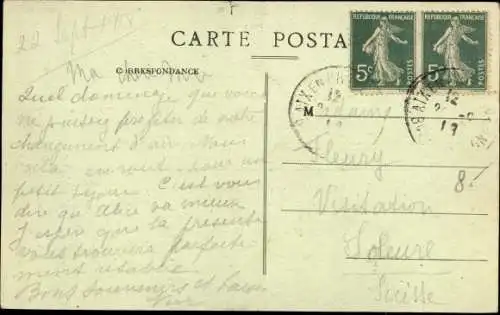 22 Sept
CARTE POSTA
CORRESPONDANCE
Ma chère
Quel dommage que vous
ne puissiez profiter de notre
changement d'air. Nous
en route pour un
petit séjour. C'est vous
dire que Alice va mieux
J'espère que la présente
vous trouvera parfaite-
ment rétablie
Bons souvenirs et
REPUBLIQUE FRANÇAISE
5c
REPUBLIQUE FRANÇAISE
5c
AIX EN
12
19
AIX
12
19
M
Fleury
Visitation
Soleure
Suisse
8